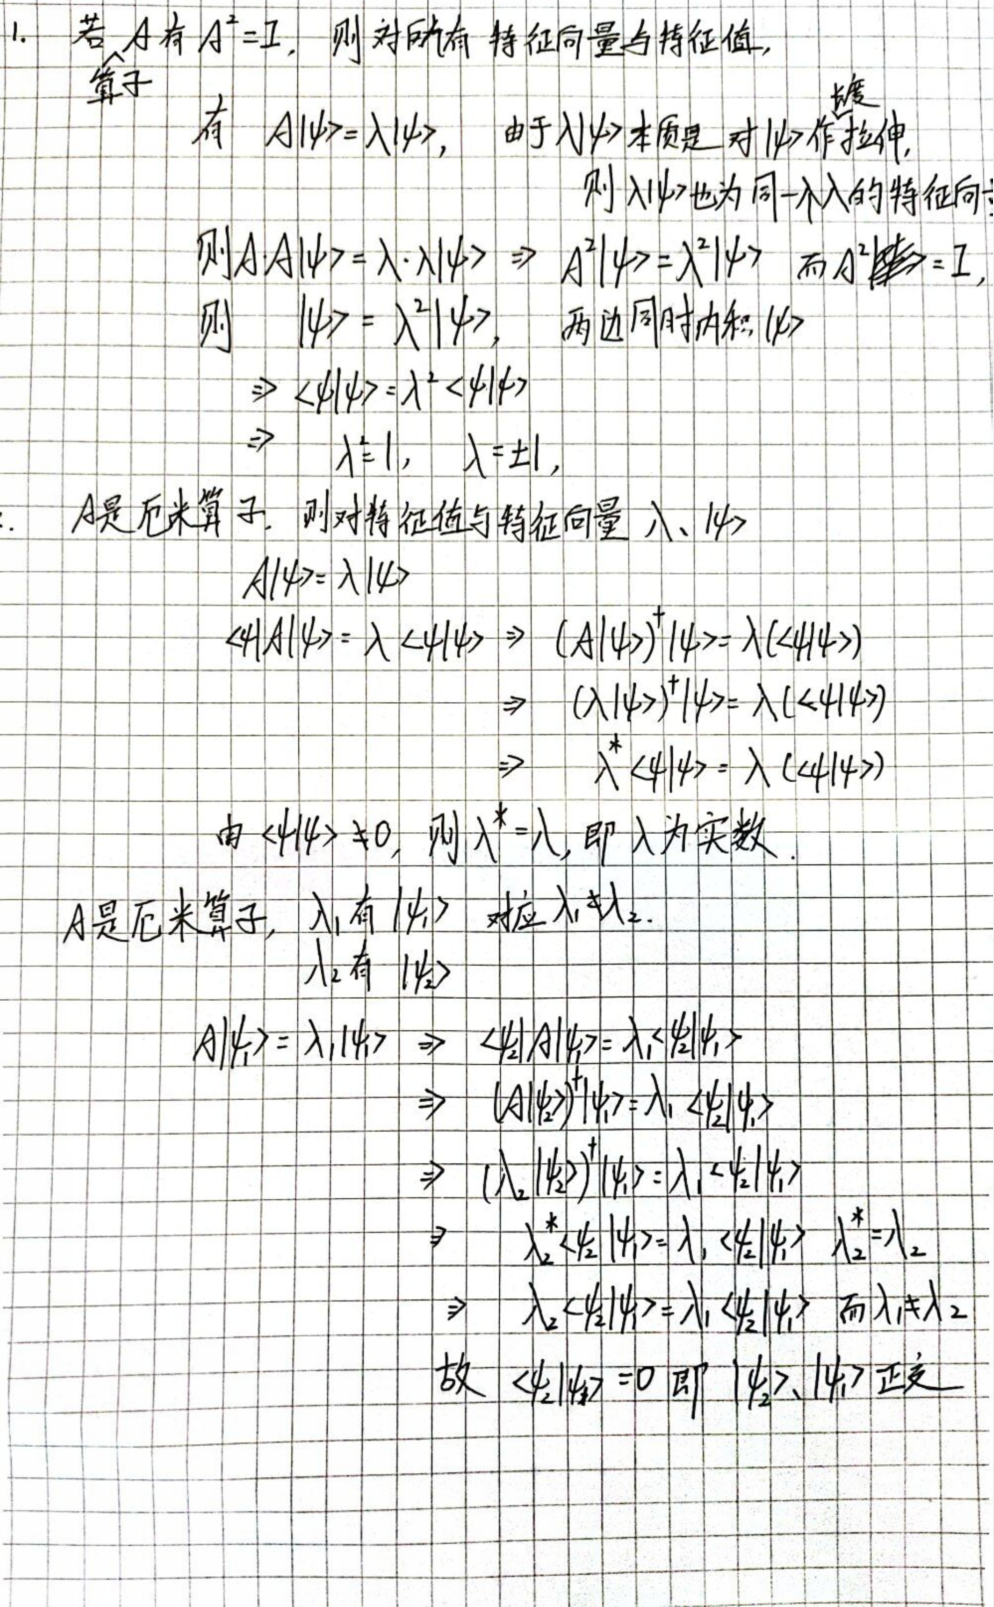 1. 若 A 有 A² = I, 则对所有 特征向量与特征值,
算子
有 A|ψ> = λ|ψ>, 由于 λ|ψ> 本质是 对|ψ> 作拉伸,
长度
则 λ|ψ> 也为同一个λ的特征向
则 A·A|ψ> = λ·λ|ψ> ⇒ A²|ψ> = λ²|ψ> 而 A² = I,
则 |ψ> = λ²|ψ>, 两边同时内积 |ψ>
⇒ <ψ|ψ> = λ² <ψ|ψ>
⇒ λ² = 1, λ = ±1,
A是厄米算子. 则对特征值与特征向量 λ、|ψ>
A|ψ> = λ|ψ>
<ψ|A|ψ> = λ <ψ|ψ> ⇒ (A|ψ>)†|ψ> = λ(<ψ|ψ>)
⇒ (λ|ψ>)†|ψ> = λ(<ψ|ψ>)
⇒ λ* <ψ|ψ> = λ (<ψ|ψ>)
由 <ψ|ψ> ≠ 0, 则 λ* = λ, 即 λ 为实数.
A是厄米算子, λ₁ 有 |ψ₁> 对应 λ₁ ≠ λ₂.
λ₂ 有 |ψ₂>
A|ψ₁> = λ₁|ψ₁> ⇒ <ψ₂|A|ψ₁> = λ₁<ψ₂|ψ₁>
⇒ (A|ψ₂>)†|ψ₁> = λ₁ <ψ₂|ψ₁>
⇒ (λ₂|ψ₂>)†|ψ₁> = λ₁ <ψ₂|ψ₁>
⇒ λ₂* <ψ₂|ψ₁> = λ₁ <ψ₂|ψ₁> λ₂* = λ₂
⇒ λ₂ <ψ₂|ψ₁> = λ₁ <ψ₂|ψ₁> 而 λ₁ ≠ λ₂
故 <ψ₂|ψ₁> = 0 即 |ψ₂>、|ψ₁> 正交